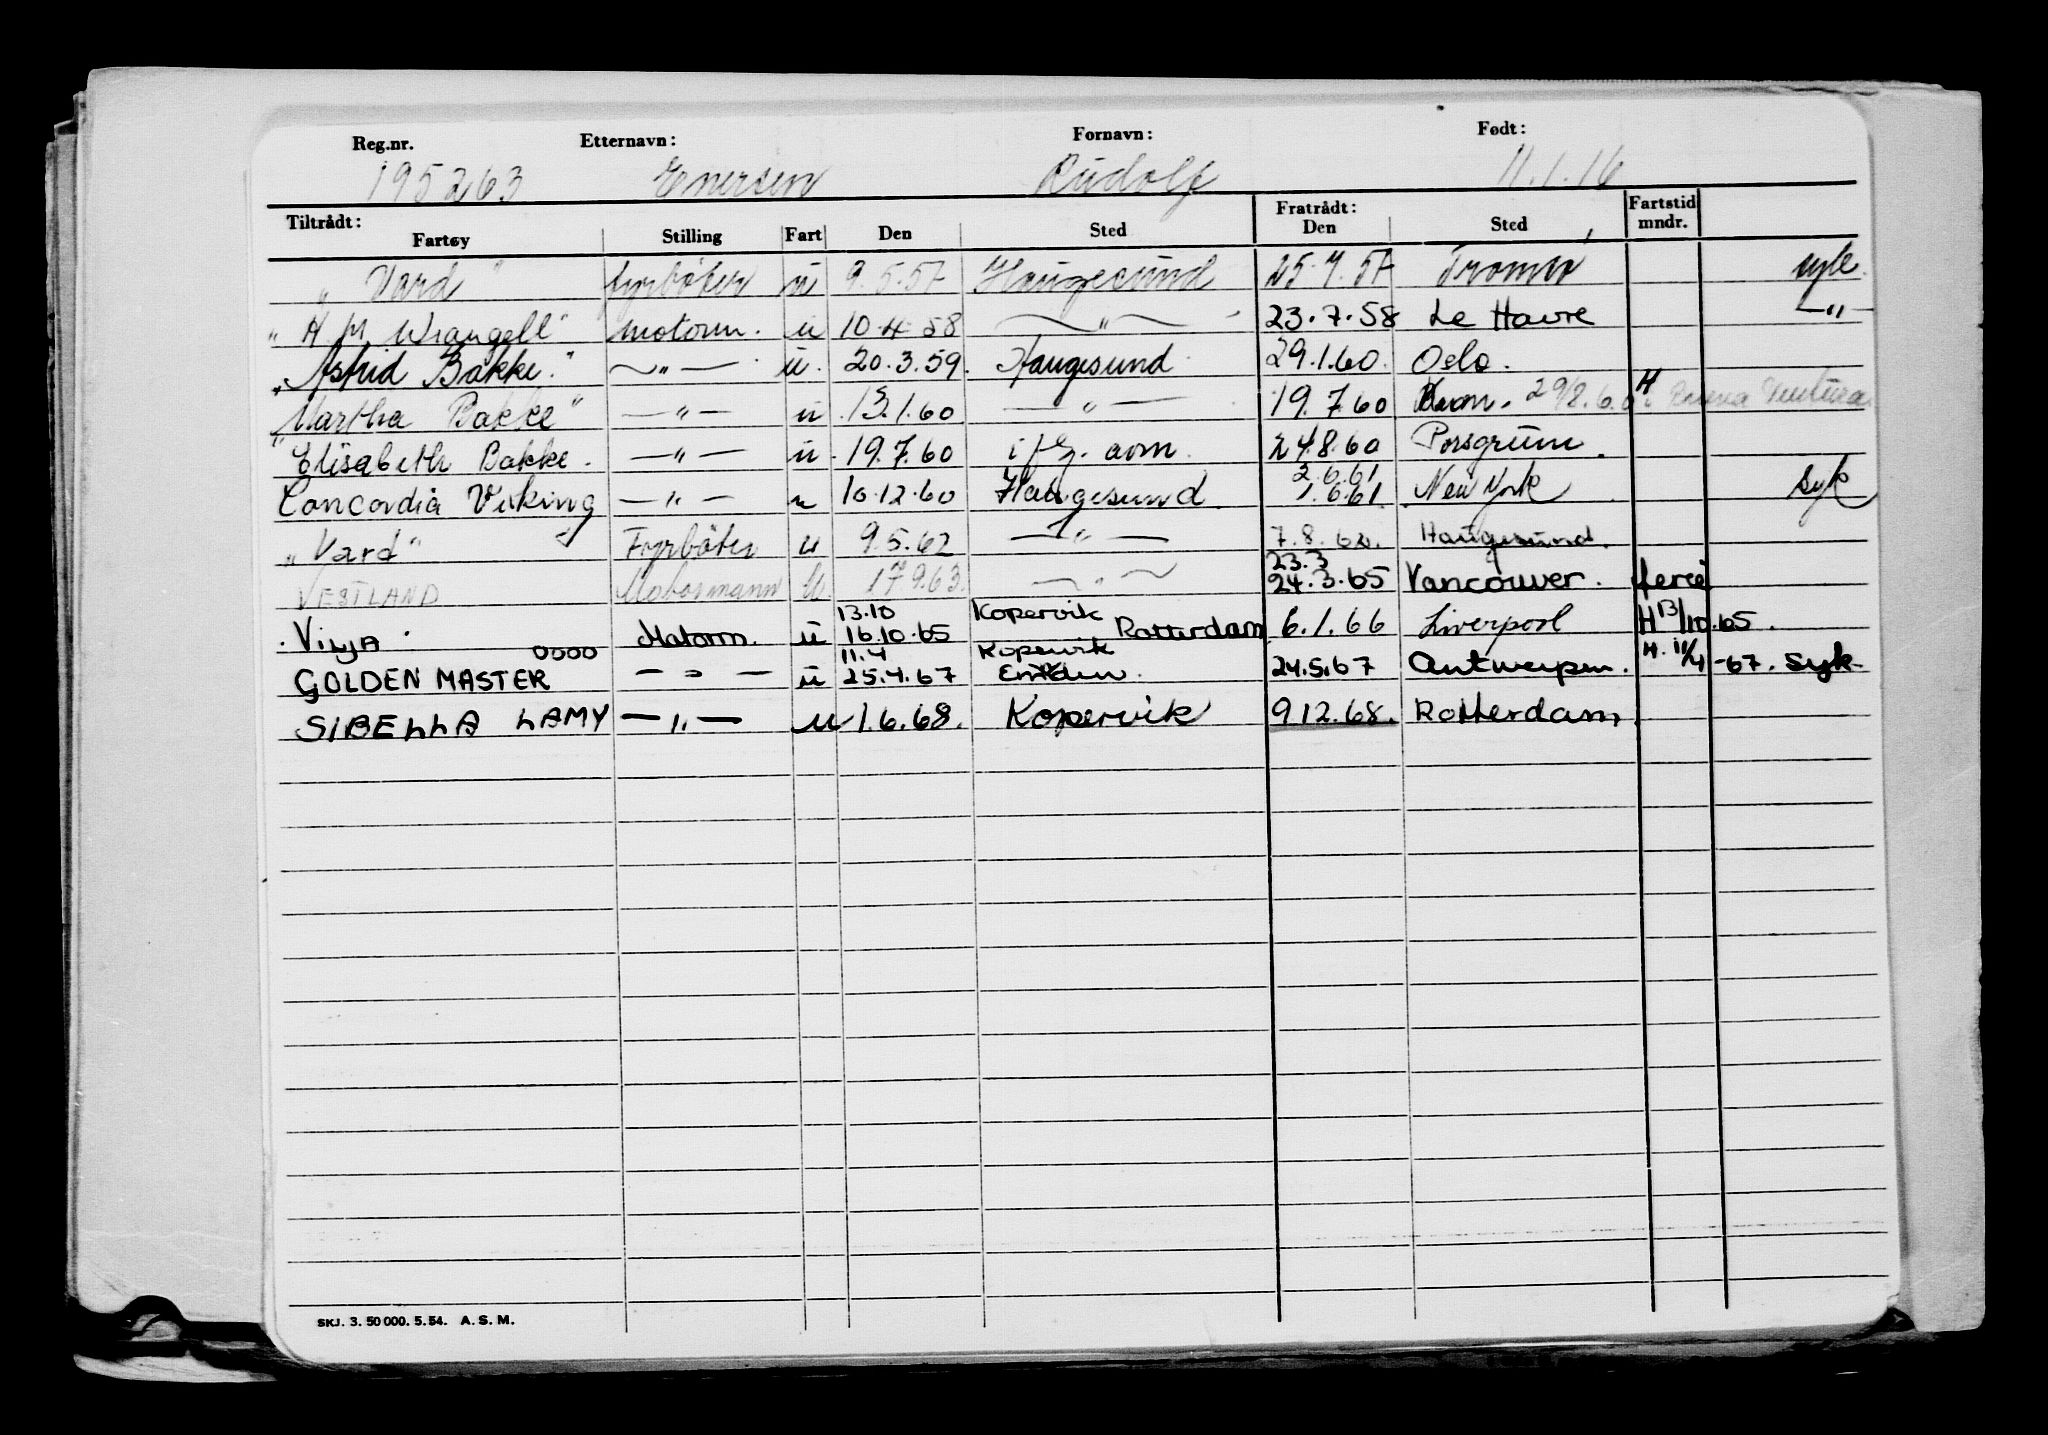 Reg.nr. Etternavn: Fornavn: Født:
195263 Enersen Rudolf 11.1.16
Tiltrådt: Fratrådt: Fartstid
Fartøy Stilling Fart Den Sted Den Sted mndr.
"Vard" fyrbøter u 9.5.57 Haugesund 25.7.57 Tromsø syk.
"H M Wrangell" motorm. u 10.4.58 —"— 23.7.58 Le Havre —"—
"Astrid Bakke." —"— u. 20.3.59. Haugesund 29.1.60. Oslo.
"Martha Bakke" —"— u 13.1.60 —"— 19.7.60 29/8.60 H. Ventura
"Elisabeth Bakke. —"— u. 19.7.60 avm. 24.8.60 Porsgrunn.
2.6.61
Concordia Viking —"— u 10.12.60 Haugesund. 1.6.61. New York syk
"Vard" Fyrbøter u 9.5.62 —"— 7.8.62. Haugesund.
23.3
VESTLAND Motormann U. 17.9.63. —"— 24.3.65 Vancouver. ferie
13.10 Kopervik
VILJA Motorm. u 16.10.65 Rotterdam 6.1.66 Liverpool H 13/10.65.
0000 11.4 Kopervik
GOLDEN MASTER —"— u 25.4.67 Emden. 24.5.67 Antwerpen. H. 11/4 -67. Syk
SIBELLA LAMY —"— u 1.6.68. Kopervik 9.12.68. Rotterdam.
SKJ. 3. 50 000. 5.54. A. S. M.